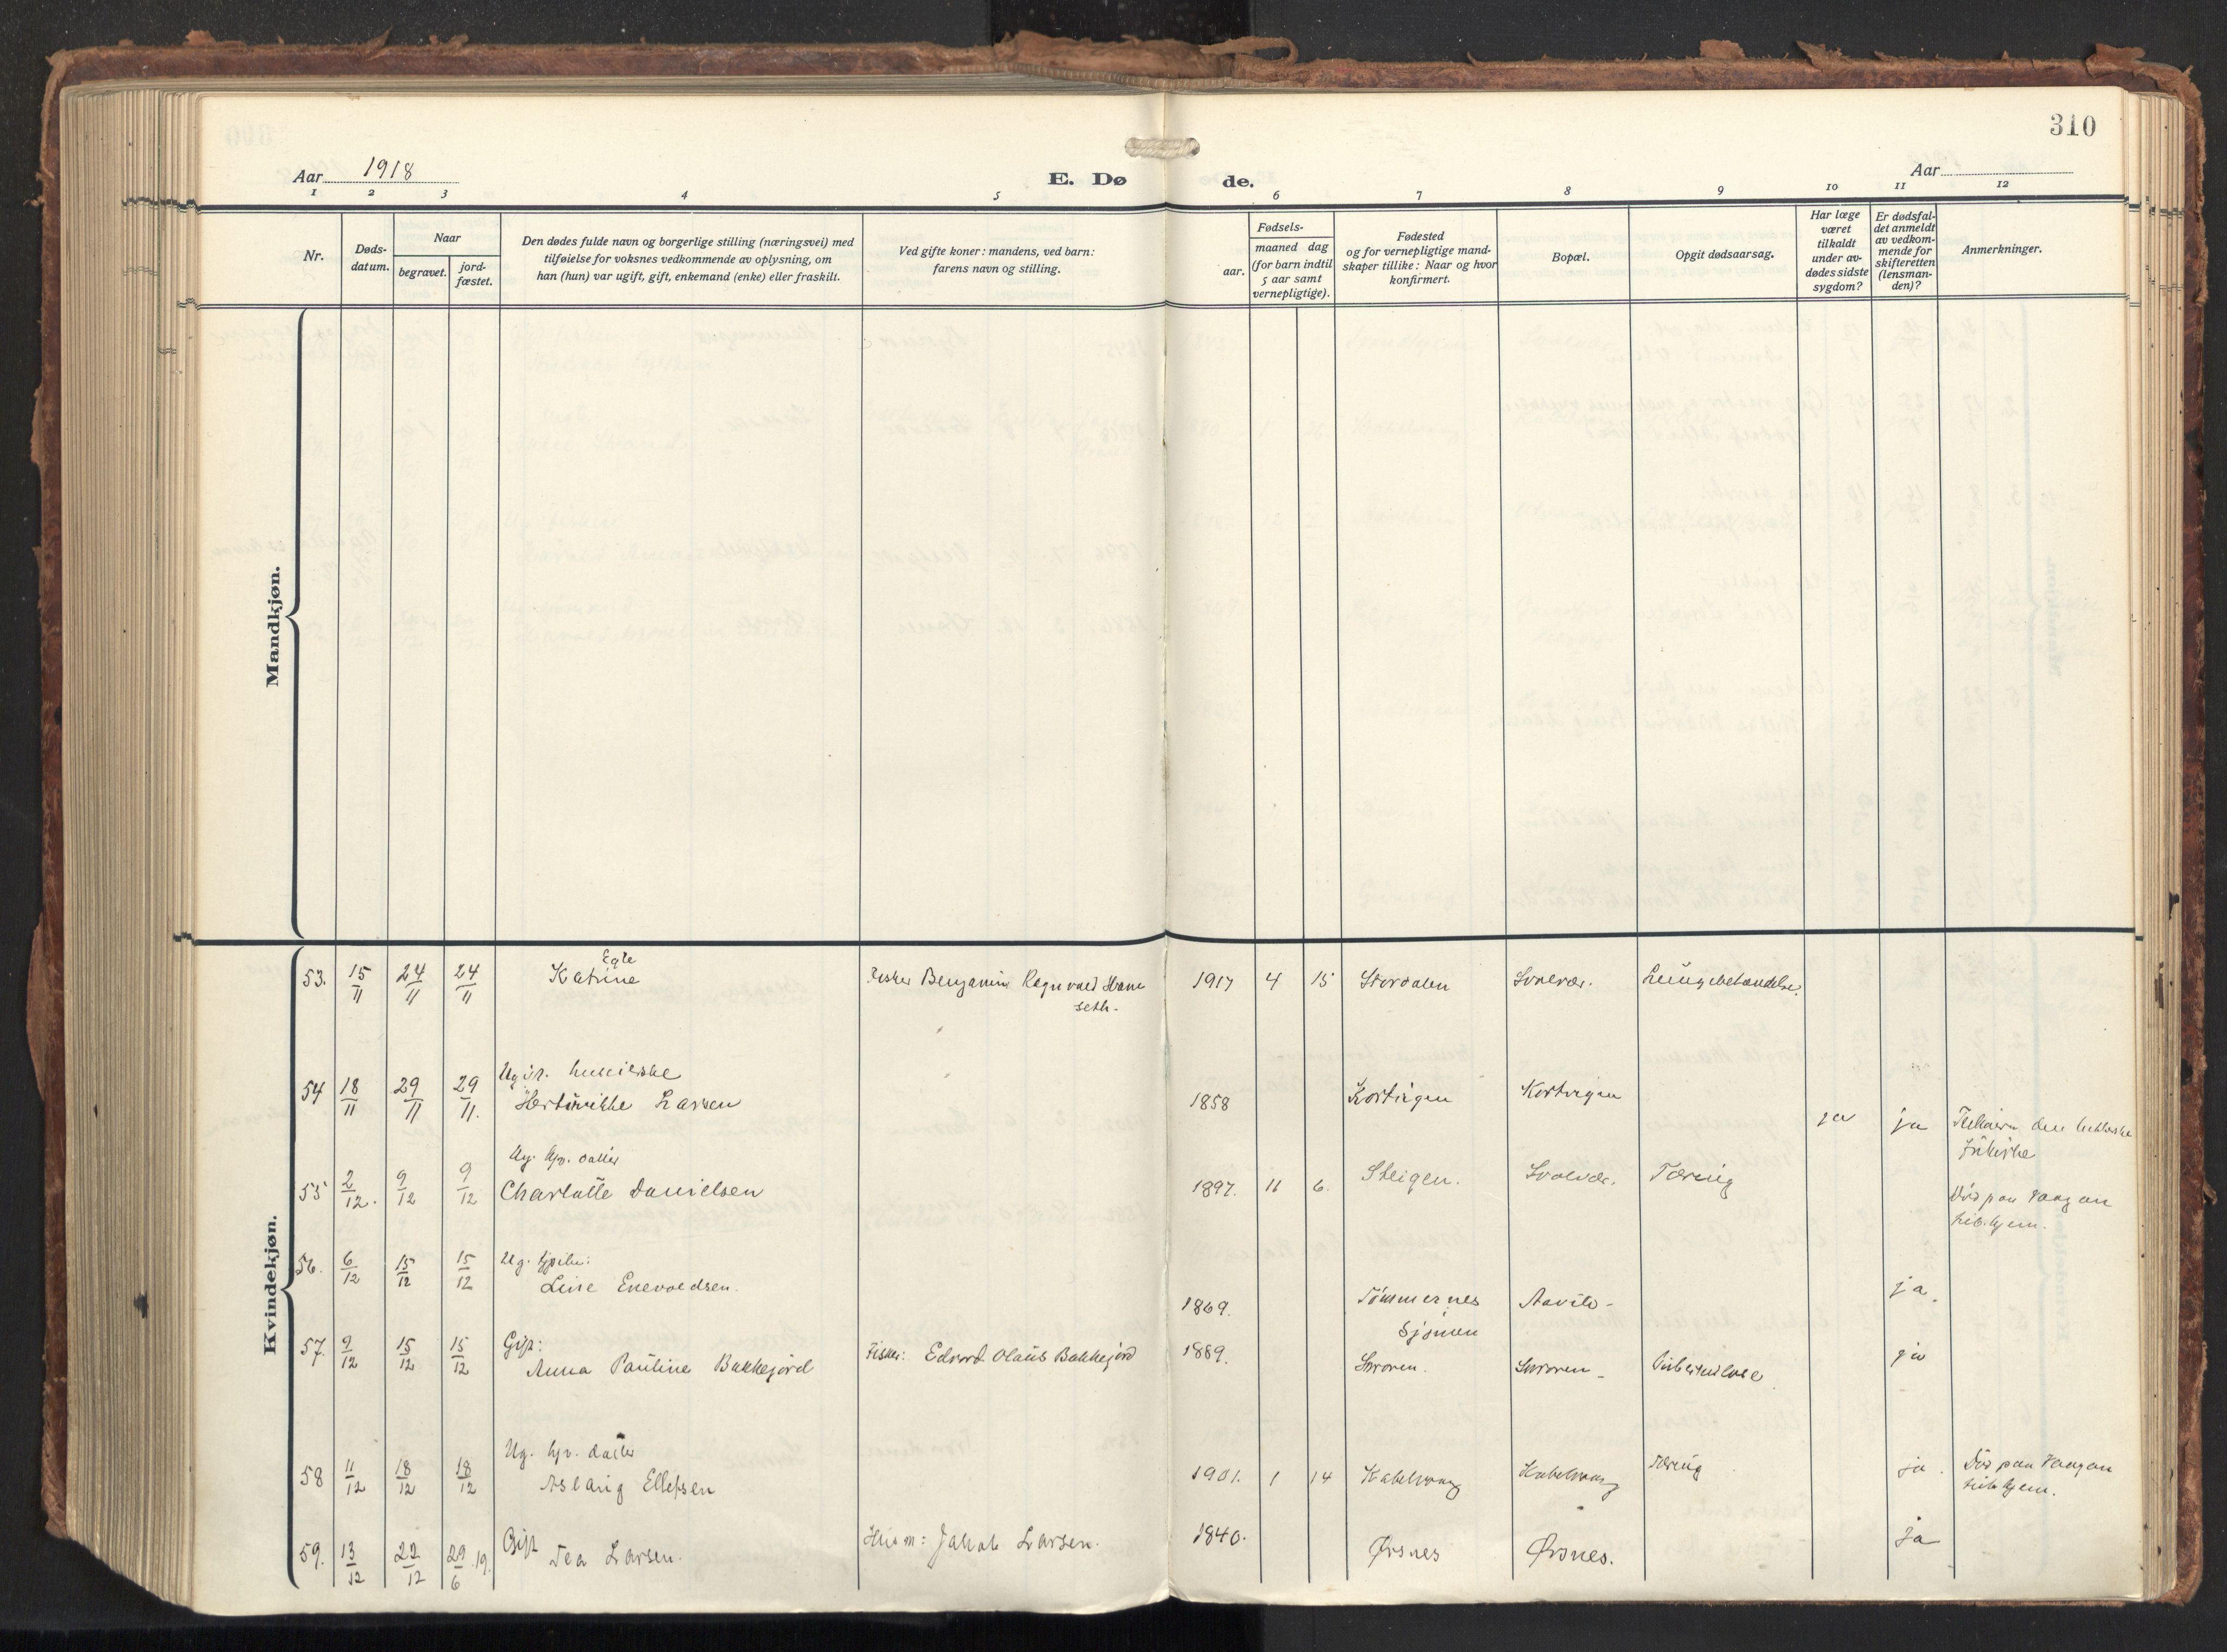 310
Aar 1918
E. Dø de.
Aar
1 2 3 4 5 6 7 8 9 10 11 12
Nr.
Døds-
datum.
Naar
begravet.
jord-
fæstet.
Den dødes fulde navn og borgerlige stilling (næringsvei) med
tilføielse for voksnes vedkommende av oplysning, om
han (hun) var ugift, gift, enkemand (enke) eller fraskilt.
Ved gifte koner: mandens, ved barn:
farens navn og stilling.
Fødsels-
aar.
maaned dag
(for barn indtil
5 aar samt
vernepligtige).
Fødested
og for vernepligtige mand-
skaper tillike: Naar og hvor
konfirmert.
Bopæl.
Opgit dødsaarsag.
Har læge
været
tilkaldt
under av-
dødes sidste
sygdom?
Er dødsfal-
det anmeldt
av vedkom-
mende for
skifteretten
(lensman-
den)?
Anmerkninger.
Mandkjøn.
Kvindekjøn.
Egte
53. 15/11 24/11 24/11 Katrine Fisker Benjamin Regnvald 1917 4 15 Stordalen Svolvær.
seth.
Ug.
54 18/11 29/11 29/11. Larsen 1858 ja ja
Ug. hjv. datter
55 2/12. 9/12 9/12 Charlotte Danielsen 1897. 11 6. Steigen. Svolvær. Tæring
Død paa Vaagan
hjem.
Ug.
56. 6/12 15/12 15/12 Line Enevoldsen. 1869. Tömmernes ja.
57. 9/12 15/12 15/12 Gift:
Anna Pauline Bakkejord Fisker: Edvard Olaus Bakkejord 1889. ja
Ug. hjv. datter
58 11/12 18/12 18/12 Aslaug Ellefsen 1901. 1 14 Kabelvaag Kabelvaag Tæring ja. Død paa Vaagan
hjem.
59. 13/12 22/12 29/6 19. Gift Tea Larsen. Husm: Jakob Larsen. 1840. Ørsnes Ørsnes. ja